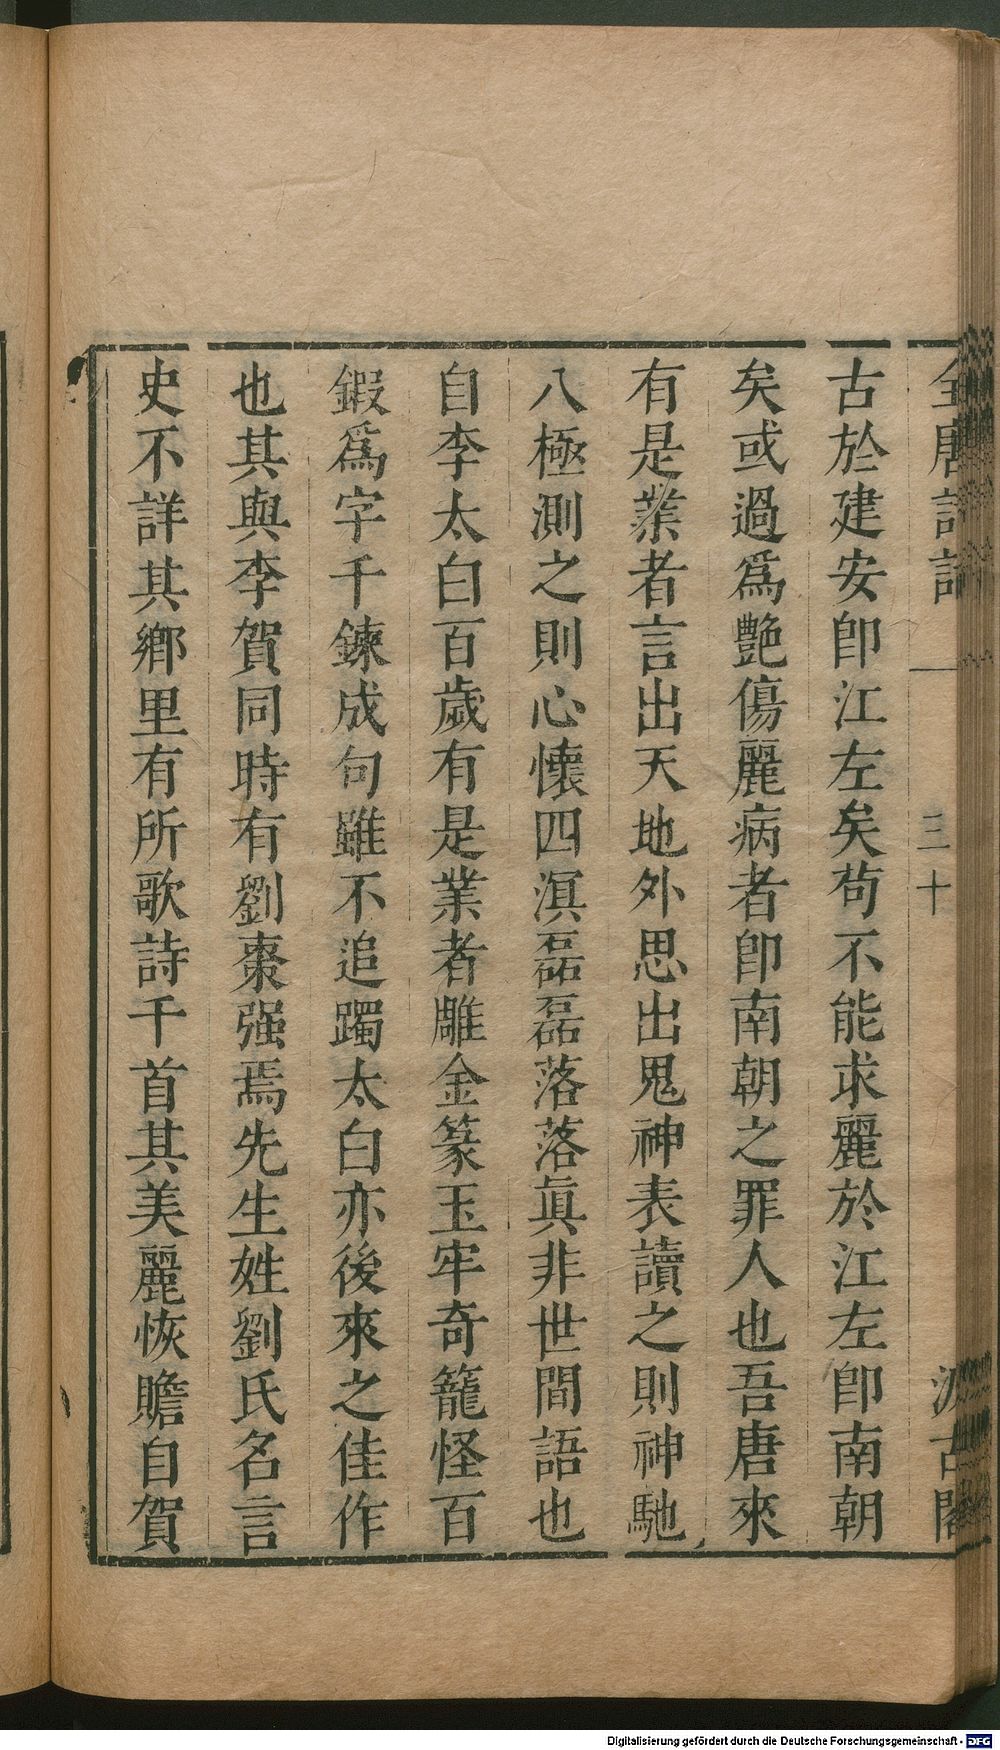 全唐詩話
三十
汲古閣
古於建安卽江左矣苟不能求麗於江左卽南朝
矣或過爲艷傷麗病者卽南朝之罪人也吾唐來
有是業者言出天地外思出鬼神表讀之則神馳
八極測之則心懷四溟磊磊落落眞非世間語也
自李太白百歲有是業者雕金篆玉牢奇籠怪百
鍜爲字千鍊成句雖不追躅太白亦後來之佳作
也其與李賀同時有劉棗强焉先生姓劉氏名言
史不詳其鄉里有所歌詩千首其美麗恢贍自賀
Digitalisierung gefördert durch die Deutsche Forschungsgemeinschaft - DFG